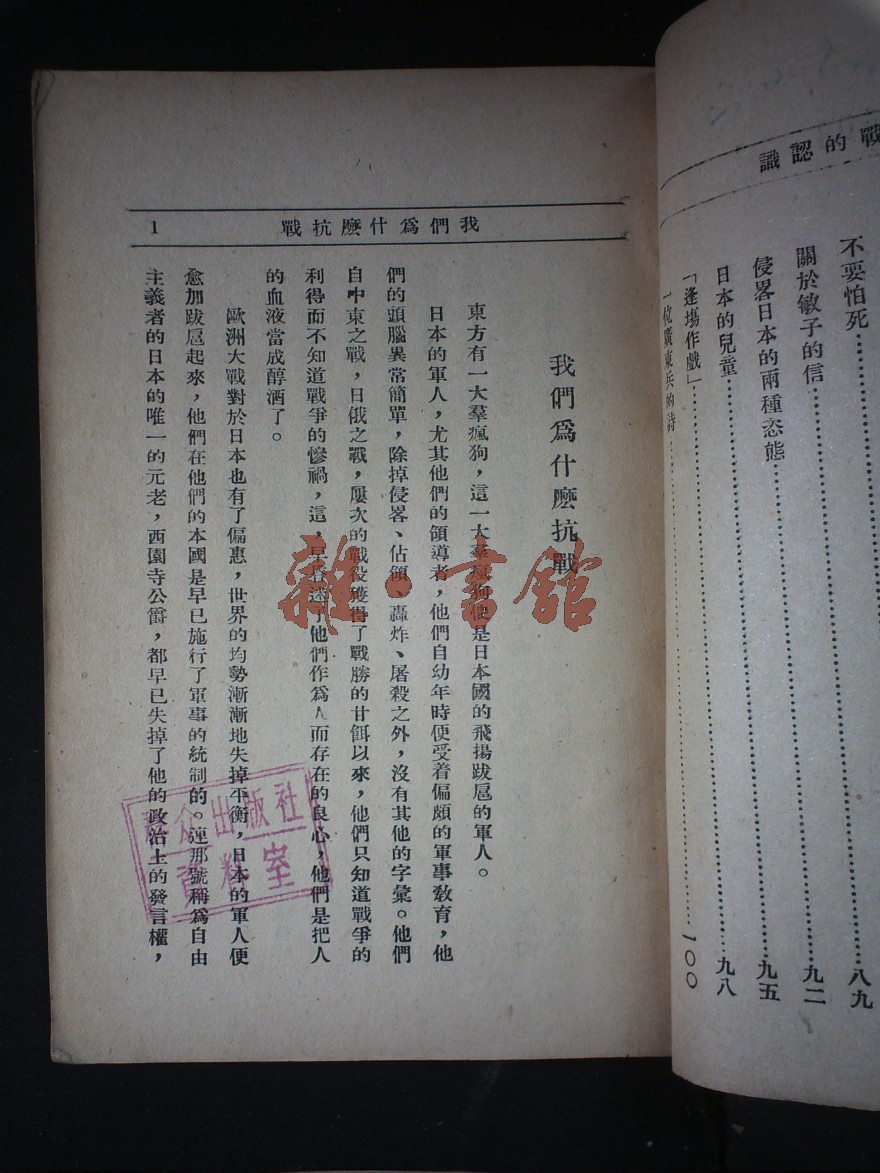 戰的認識
不要怕死……八九
關於敏子的信……九二
侵畧日本的兩種态態……九五
日本的兒童……九八
「逢場作戲」……一〇〇
我們爲什麽抗戰 1
我們爲什麽抗戰
東方有一大羣瘋狗，這一大羣瘋狗便是日本國的飛揚跋扈的軍人。
日本的軍人，尤其他們的領導者，他們自幼年時便受着偏頗的軍事敎育，他
們的頭腦異常簡單，除掉侵畧、佔領、轟炸、屠殺之外，沒有其他的字彙。他們
自中東之戰，日俄之戰，屢次的戰役獲得了戰勝的甘餌以來，他們只知道戰爭的
利得而不知道戰爭的慘禍，這，早昏迷了他們作爲人而存在的良心，他們是把人
的血液當成醇酒了。
歐洲大戰對於日本也有了偏惠，世界的均勢漸漸地失掉平衡，日本的軍人便
愈加跋扈起來，他們在他們的本國是早已施行了軍事的統制的。連那號稱爲自由
主義者的日本的唯一的元老，西園寺公爵，都早已失掉了他的政治上的發言權，
雜·書館
众出版社
資料室